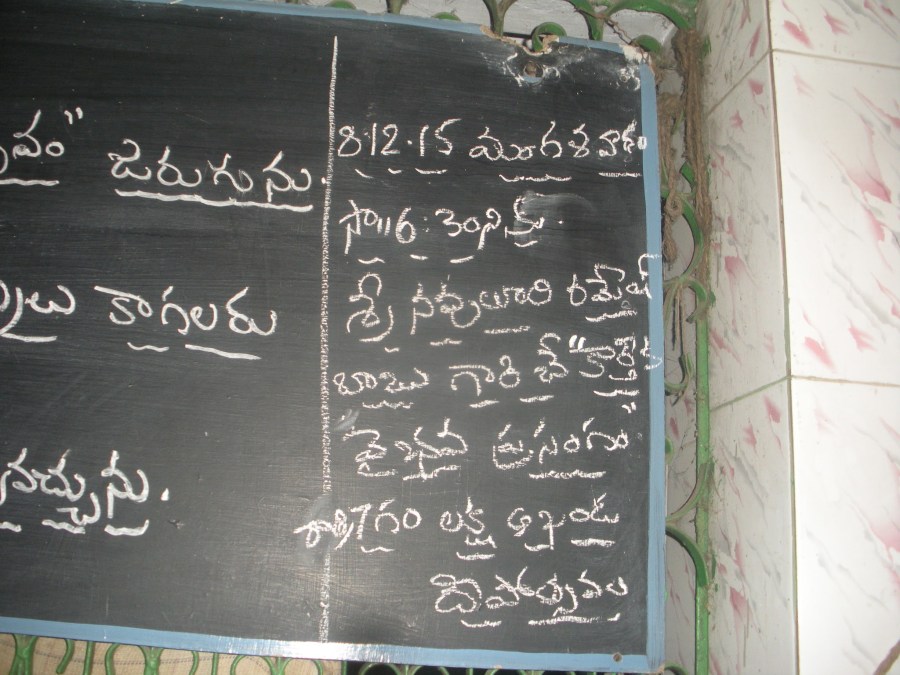 వం" జరుగును.
లు కాగలరు
వచ్చును.
8.12.15 మంగళవారం
సా॥6:30ని.కు.
శ్రీ నవులూరి రమేష్
బాబు గారి చే "కార్తీక
వైభవ ప్రసంగం"
రాత్రి 7గం లక్ష అఖండ
దీపోత్సవం